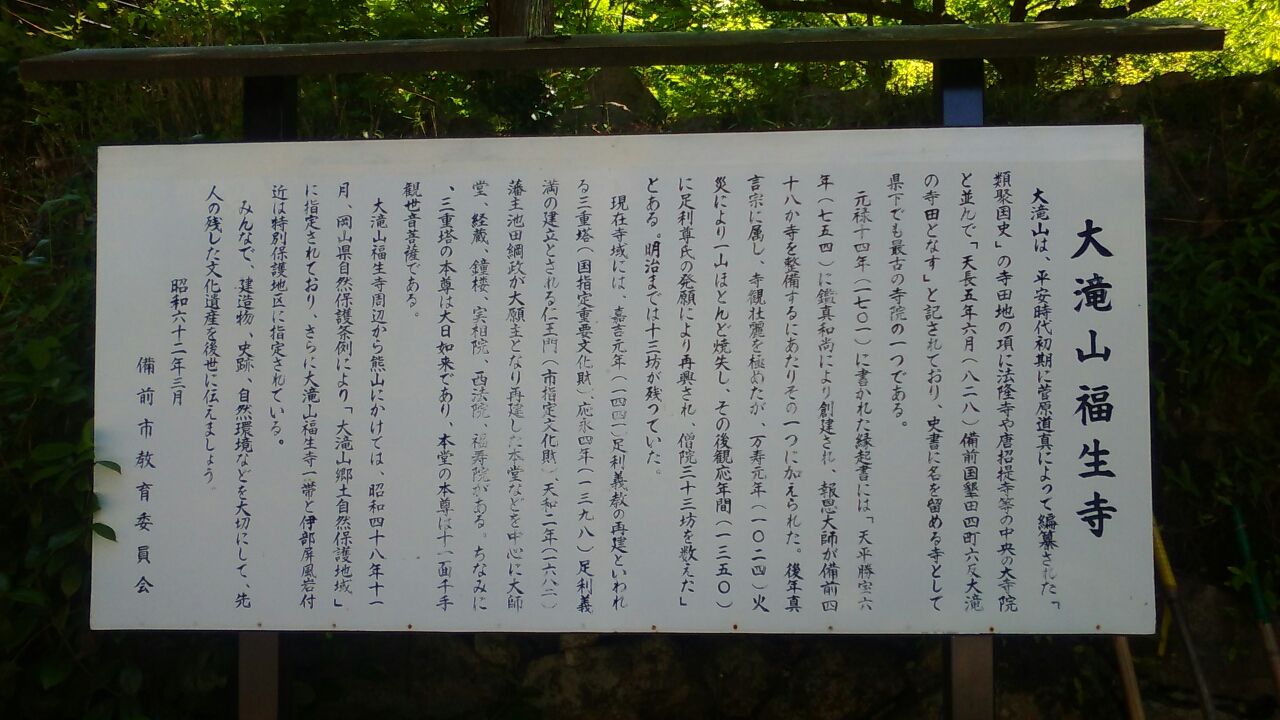 大滝山福生寺
大滝山は、平安時代初期に菅原道真によって編纂された「
類聚国史」の寺田地の項に法隆寺や唐招提寺等の中央の大寺院
と並んで「天長五年六月（八二八）備前国墾田四町六反大滝
の寺田となす」と記されており、史書に名を留める寺として
県下でも最古の寺院の一つである。
元禄十四年（一七〇一）に書かれた縁起書には「天平勝宝六
年（七五四）に鑑真和尚により創建され、報恩大師が備前四
十八か寺を整備するにあたりその一つに加えられた。後年真
言宗に属し、寺観壮麗を極めたが、万寿元年（一〇二四）火
災により一山ほとんど焼失し、その後観応年間（一三五〇）
に足利尊氏の発願により再興され、僧院三十三坊を数えた」
とある。明治までは十三坊が残っていた。
現在寺域には、嘉吉元年（一四四一）足利義教の再建といわれ
る三重塔（国指定重要文化財）、応永四年（一三九八）足利義
満の建立とされる仁王門（市指定文化財）、天和二年（一六八二）
藩主池田綱政が大願主となり再建した本堂などを中心に大師
堂、経蔵、鐘楼、実相院、西法院、福寿院がある。ちなみに
、三重塔の本尊は大日如来であり、本堂の本尊は十一面千手
観世音菩薩である。
大滝山福生寺周辺から熊山にかけては、昭和四十八年十一
月、岡山県自然保護条例により「大滝山郷土自然保護地域」
に指定されており、さらに大滝山福生寺一帯と伊部屏風岩付
近は特別保護地区に指定されている。
みんなで、建造物、史跡、自然環境などを大切にして、先
人の残した文化遺産を後世に伝えましょう。
昭和六十二年三月
備前市教育委員会